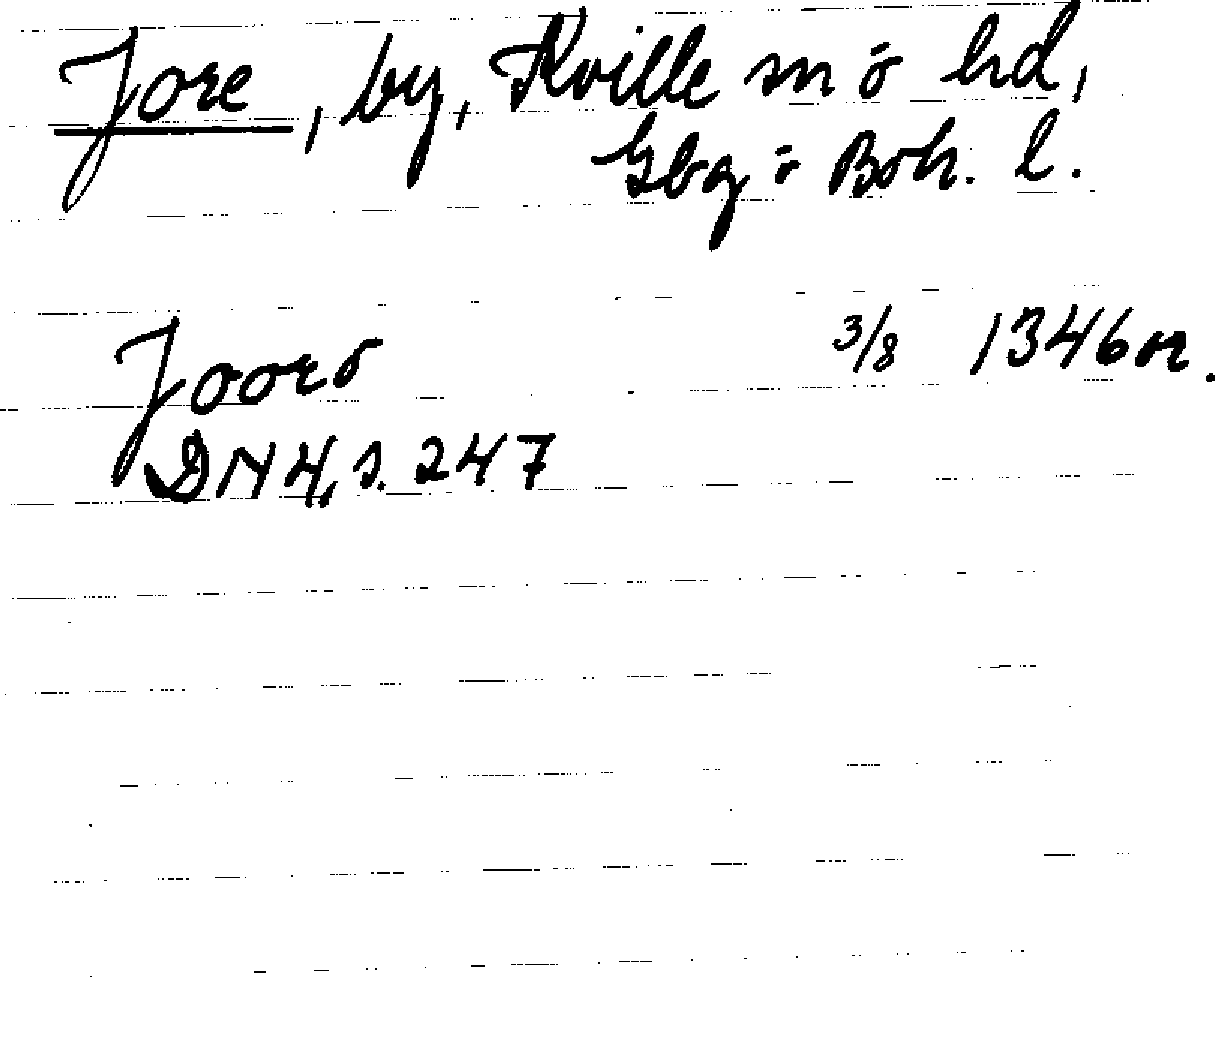 Jore, by, Kville sn o hd,
Gbg o Boh. l.
Jooro 3/8 1346 or.
DN 4, s. 247